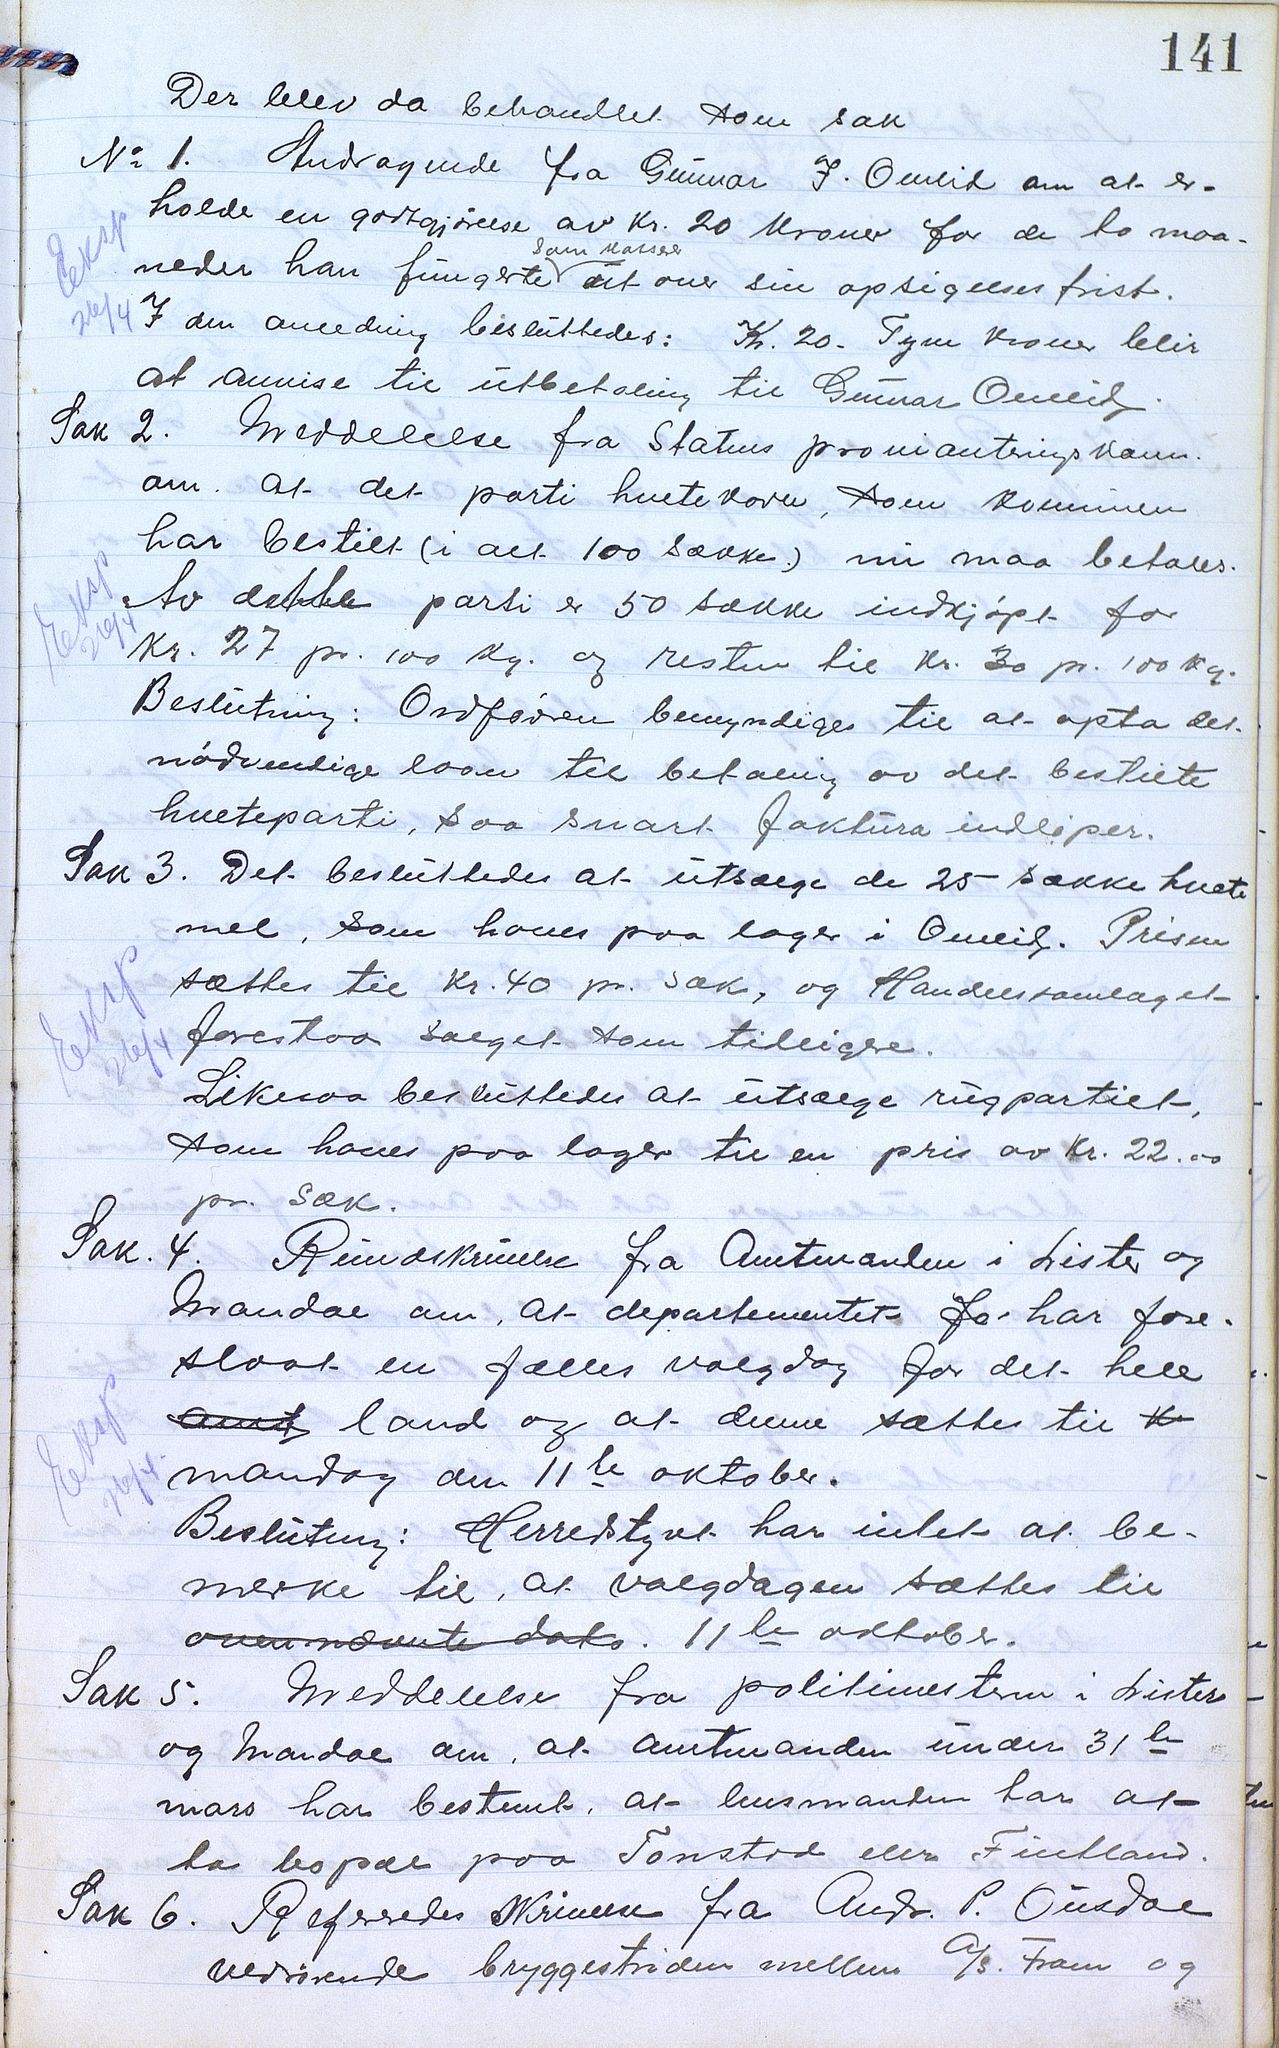 141
Der blev da behandlet som sak
No 1. Andragende fra Gunnar T. Omlid om at er-
holde en godtgjörelse av kr. 20 kroner for de to maa-
neder han fungerte som kasser ut over sin opsigelses frist.
I den anledning besluttedes: Kr. 20 - Tyve kroner blir
at anvise til utbetaling til Gunnar Omlid.
Eksp 26/4
Sak 2. Meddelelse fra Statens provianteringskom.
om. at det parti hvetekorn, som kommunen
har bestilt (i alt 100 sække) nu maa betales.
Av dette parti er 50 sække indkjøpt for
kr. 27 pr. 100 kg. og resten til kr. 30 pr. 100 kg.
Eksp 26/4
Beslutning: Ordföreren bemyndiges til at opta det
nödvendige laan til betaling av det bestilte
hveteparti, saa snart faktura indløper.
Sak 3. Det besluttedes at utsælge de 25 sække hvete
mel, som haves paa lager i Omlid. Prisen
sættes til kr. 40 pr. sæk, og Handelssamlaget
forestaa salget som tidligere.
Eksp 26/4
Likesaa besluttedes at utsælge rugpartiet,
som haves paa lager til en pris av kr. 22.00
pr. sæk.
Sak. 4. Rundskrivelse fra Amtmanden i Lister og
Mandal om, at departementet fo har fore-
slaat en fælles valgdag for det hele
amt land og at denne sættes til
mandag den 11te oktober.
Eksp 26/4
Beslutning: Herredstyret har intet at be-
merke til, at valgdagen sættes til
ovennævnte dato. 11te oktober.
Sak 5. Meddelelse fra politimesteren i Lister
og Mandal om, at amtmanden under 31te
mars har bestemt, at lensmanden har at
ta bopæl paa Tonstad eller Fintland.
Sak 6. Referredes skrivelse fra Andr. P. Ousdal
vedrörende bryggestriden mellem A/s. Fram og